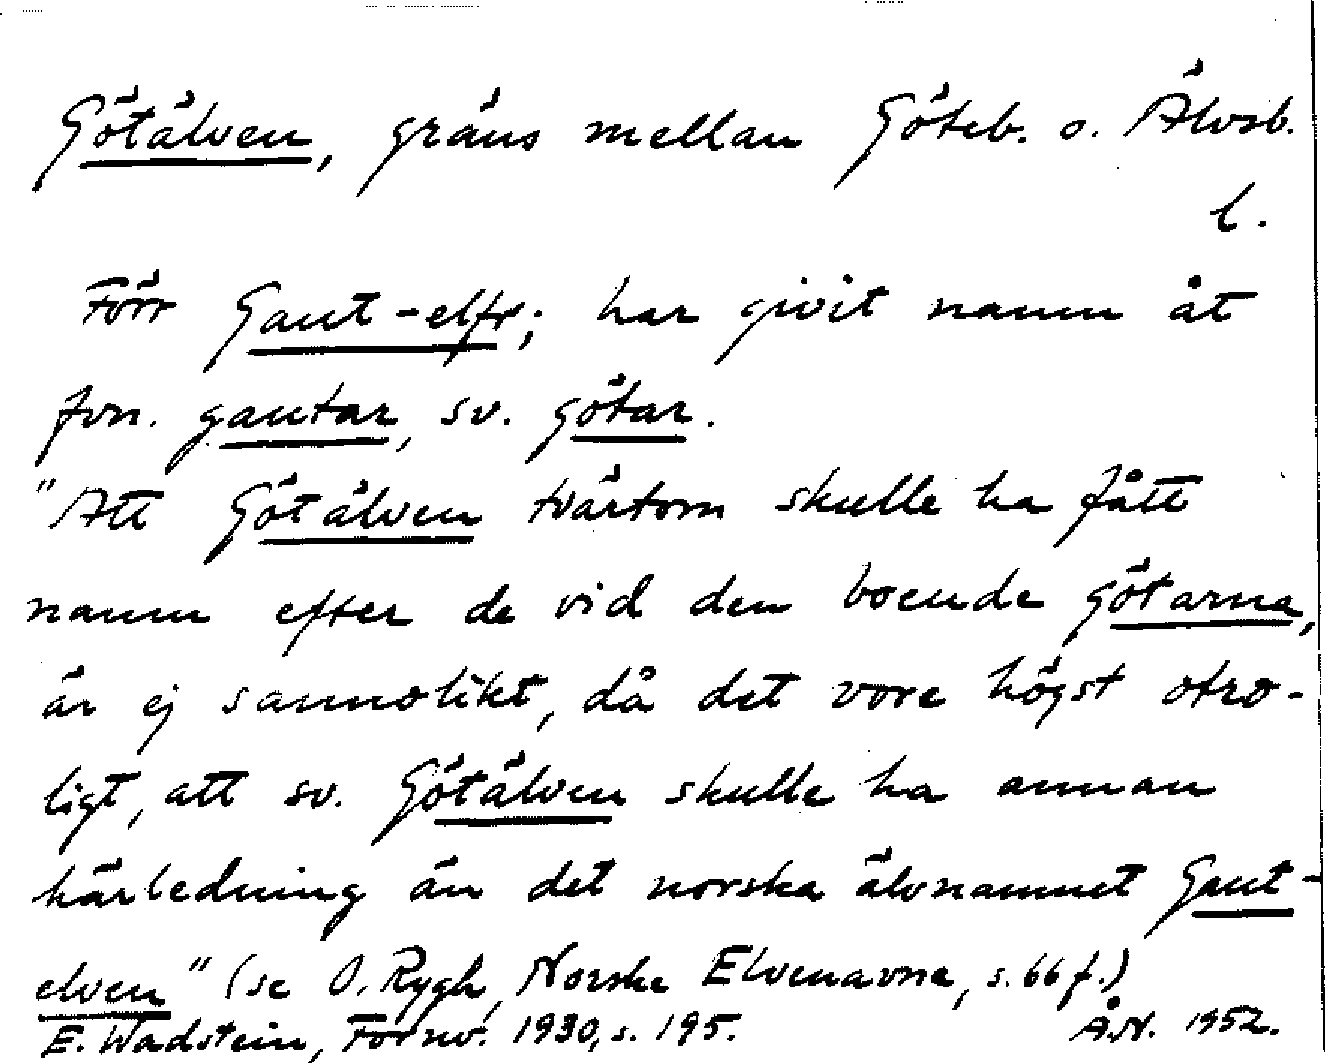 Götälven, gräns mellan Göteb. o. Älvsb.
l.
Förr Gaut-elfr; har givit namn åt
fvn. gautar, sv. götar.
"Att Götälven tvärtom skulle ha fått
namn efter de vid den boende götarna,
är ej sannolikt, då det vore högst otro-
ligt, att sv. Götälven skulle ha annan
härledning än det norska älvnamnet Gaut-
elven" (se O. Rygh, Norske Elvenavne, s. 66 f.)
E. Wadstein, Fornv. 1930, s. 195. Å.N. 1952.